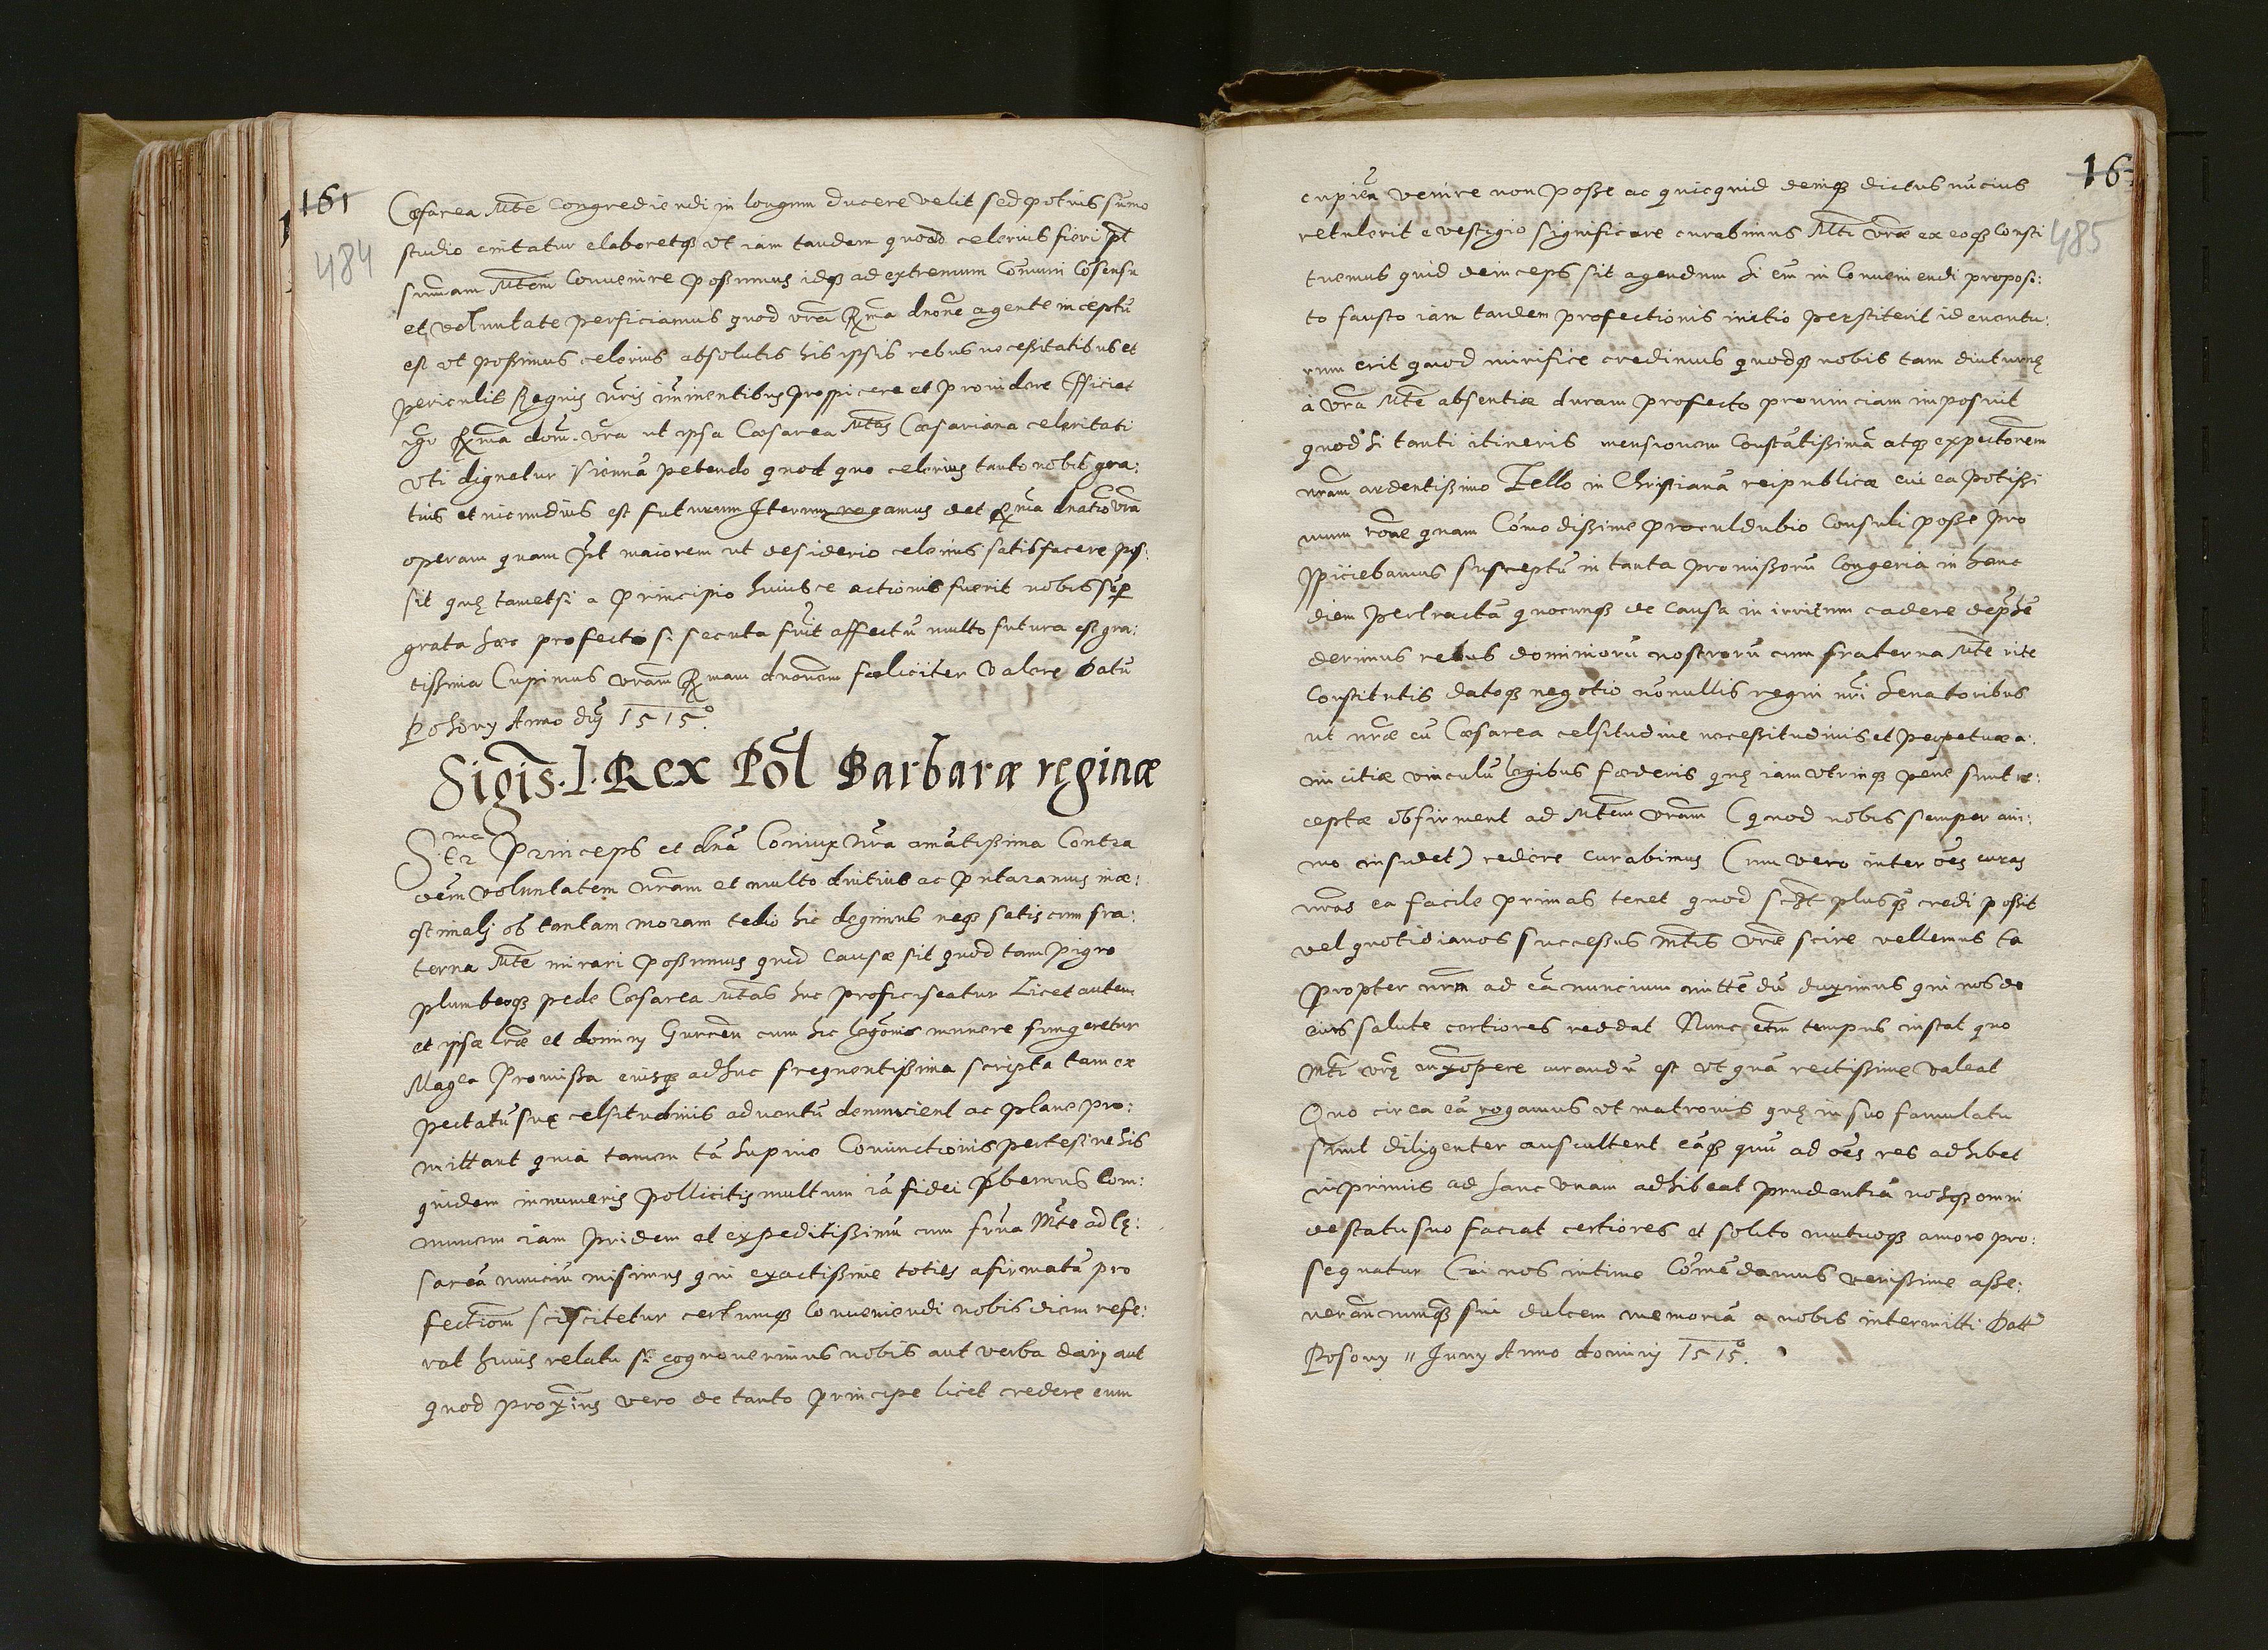 161
484
Cæsarea Mte congrediendi in longum ducere velit sed potius sumo
studio enitatur elaboretqꝫ ut iam tandem quoad celerius fieri pt
suam Mtem convenire possimus idqꝫ ad extremum comuni cosensu
et voluntate perficiamus quod vra Rma dnone agente inceptu
est ut possimus celerius absolutis his ipsis rebus necessitatibus et
periculis Regnis nris iminentibus prospicere et providere Efficiat
igr Rma dom. vra ut ipsa Cæsarea Mtas Cæsariana celeritati
uti dignetur Vienna petendo quod quo celerius tanto nobis gra:
tius et iucundius est futurum Iterum rogamus det Rma dnatio vra
operam quam pt maiorem ut desiderio celerius satisfacere pos:
sit quę tametsi a principio huiusce actionis fuerit nobis sup
grata hæc profecto si secuta fuit affectu multo futura est gra:
tissima Cupimus vram Rmam dnonem fœliciter valere Datu
Posony Anno dnj 1515º.
Sigis. I. Rex Pol Barbaræ reginæ
Sma princeps et dna Coniux nra amatissima Contra
oem voluntatem nram et multo diutius ac putaramus inæ:
stimalj ob tantam moram tedio hic degimus neqꝫ satis cum fra:
terna Mte mirari possumus quid causæ sit quod tam pigro
plumbeoqꝫ pede Cæsarea Mtas huc proficiscatur Licet autem
et ipsæ lræ et dominj Gurcen cum hic legonis munere fungeretur
Magna promissa eiusqꝫ adhuc frequentissima scripta tam ex
pectatu suę celsitudinis adventu denuncient ac plane pro:
mittant quia tamen ta supine coniunctionis pertesi ne his
quidem innumeris pollicitis multum ia fidei pbemus Com:
munem iam pridem et expeditissimu cum frna Mte ad Cę:
sarea nunciu misimus qui exactissime toties afirmata pro
fectiom sciscitetur certumqꝫ conveniendi nobis diem refe:
rat huius relatu si cognoverimus nobis aut verba darj aut
quod propius vero de tanto principe licet credere eum
16
485
cupieta venire non posse ac quicquid deniqꝫ dictus nucius
retulerit e vestigio significare curabimus Mti vræ ex eoqꝫ consti
tuemus quid deinceps sit agendum Si em in conveniendi proposi:
to fausto iam tandem profectionis initio perstiterit id eventu:
rum erit quod mirifice credimus quodqꝫ nobis tam diuturnę
à vra Mte absentiæ duram profecto provinciam imposuit
quod si tanti itineris mensionem constatissima atqꝫ expectonem
nram ardentissimo Zello in Christiana reipublicæ cui ea potissi
mum rone quam comodissime proculdubio consuli posse pro
spiciebamus susceptu in tanta promissoru congeria in hanc
diem pertracta quocunqꝫ de causa in irritum cadere depre
derimus rebus dominioru nostroru cum fraterna Mte rite
constitutis datoqꝫ negotio nonullis regni nri Senatoribus
ut nræ cu Cæsarea celsitudine necessitudinis et perpetuæ a:
micitiæ vinculu legibus fœderis quę iam utrinqꝫ pene sunt re:
ceptæ obfirment ad Mtem vram (quod nobis semper ani:
mo insidet) redire curabimus Cum vero inter oes curas
nras ea facile primas tenet quod scit plusqꝫ credi possit
vel quotidianos successus Mtis vræ scire vellemus ea
propter nrm ad ea nuncium mittedu duximus qui nos de
eius salute certiores reddat Nunc etm tempus instat quo
Mti vrę magnopere curandu est ut qua rectissime valeat
Quo circa ea rogamus ut matronis quę in suo famulatu
sunt diligenter auscultent eaqꝫ quu ad oes res adhibet
inprimis ad hanc unam adhibeat prudentia nosqꝫ omni
de statu suo faciat certiores et solito mutuoqꝫ amore pro:
sequatur Cui nos intime comedamus verissime asse:
veran nunqꝫ sui dulcem memoria a nobis intermitti Datt
Posony 11 Iuny Anno dominj 1515º.